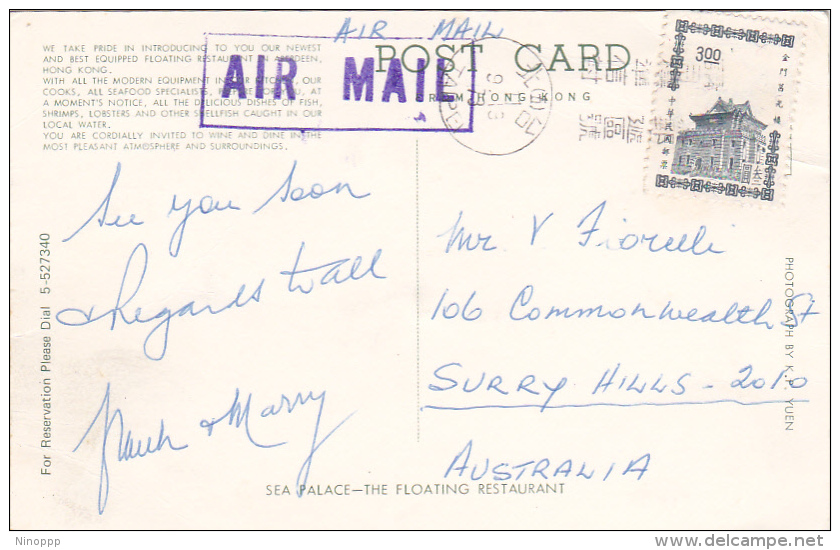 AIR MAIL
WE TAKE PRIDE IN INTRODUCING TO YOU OUR NEWEST
AND BEST EQUIPPED FLOATING RESTAURANT IN ABERDEEN,
HONG KONG.
WITH ALL THE MODERN EQUIPMENT IN OUR KITCHEN, OUR
COOKS, ALL SEAFOOD SPECIALISTS, PREPARE FOR YOU, AT
A MOMENT'S NOTICE, ALL THE DELICIOUS DISHES OF FISH,
SHRIMPS, LOBSTERS AND OTHER SHELLFISH CAUGHT IN OUR
LOCAL WATER.
YOU ARE CORDIALLY INVITED TO WINE AND DINE IN THE
MOST PLEASANT ATMOSPHERE AND SURROUNDINGS.
AIR MAIL
POST CARD
FROM HONG KONG
300
金門莒光樓
中華民國郵票
叁圓
See you soon
& Regards to all
& Marry
Mr V Fiorelli
106 Commonwealth St
SURRY HILLS - 2010
AUSTRALIA
For Reservation Please Dial 5-527340
PHOTOGRAPH BY K. P. YUEN
SEA PALACE—THE FLOATING RESTAURANT
Ninoppp
delcampe.net